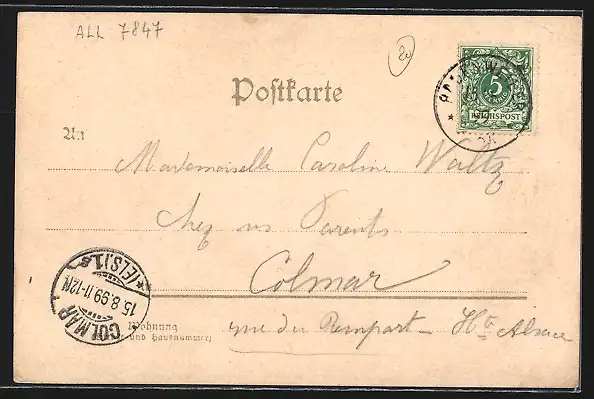 ALL 7847
20
Postkarte
5
PFENNIG
REICHSPOST
An
Mademoiselle Caroline Waltz
chez ses Parents
Colmar
COLMAR (ELS) 1.s
15.8.99 11-12V
Wohnung
und Hausnummer)
rue du Rempart - Hte Alsace